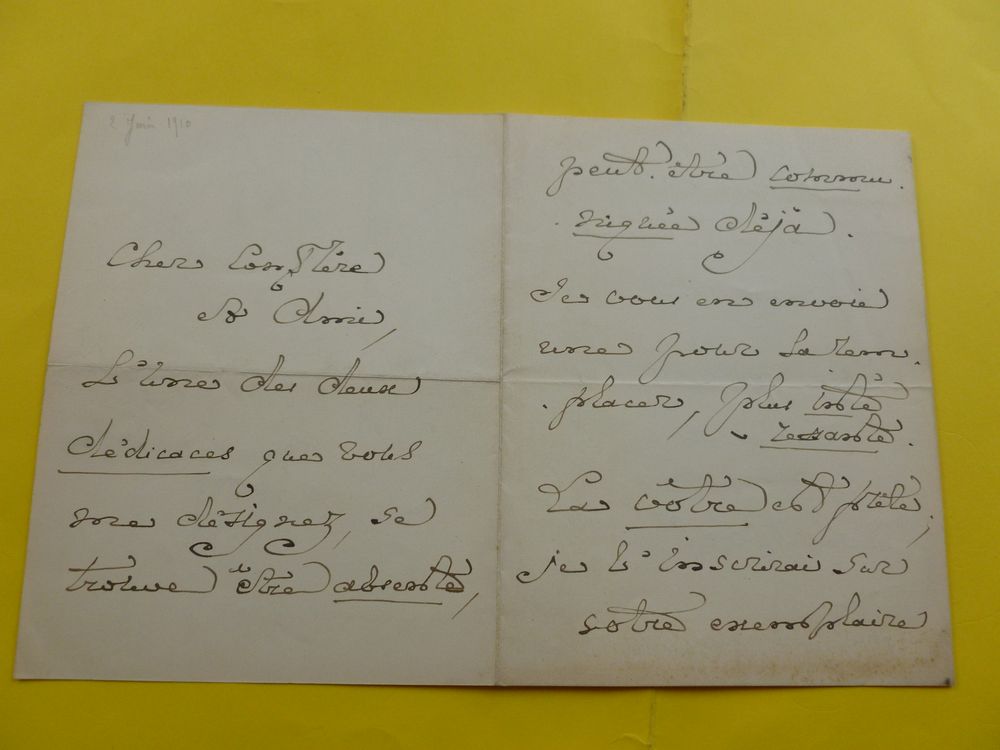 2 Juin 1910
Cher Confrère
et Ami,
L'une des deux
dédicaces que vous
me désignez, se
trouve être absente,
peut.être commu.
.niquée déjà.
Je vous en envoie
une pour la rem.
.placer, plus inté
ressante.
La vôtre est prête,
je l'inscrirai sur
votre exemplaire